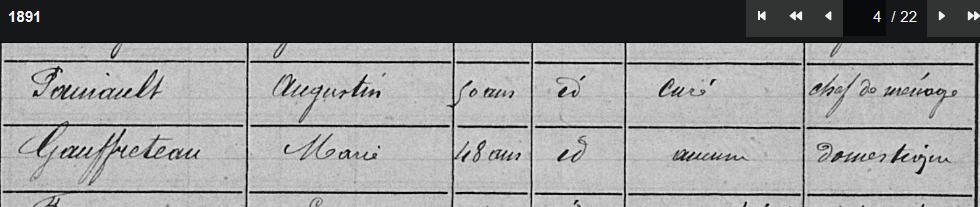 1891 4 / 22
Painiault Augustin 50 ans id Curé chef de ménage
Gauffreteau Marie 48 ans id aucune domestique